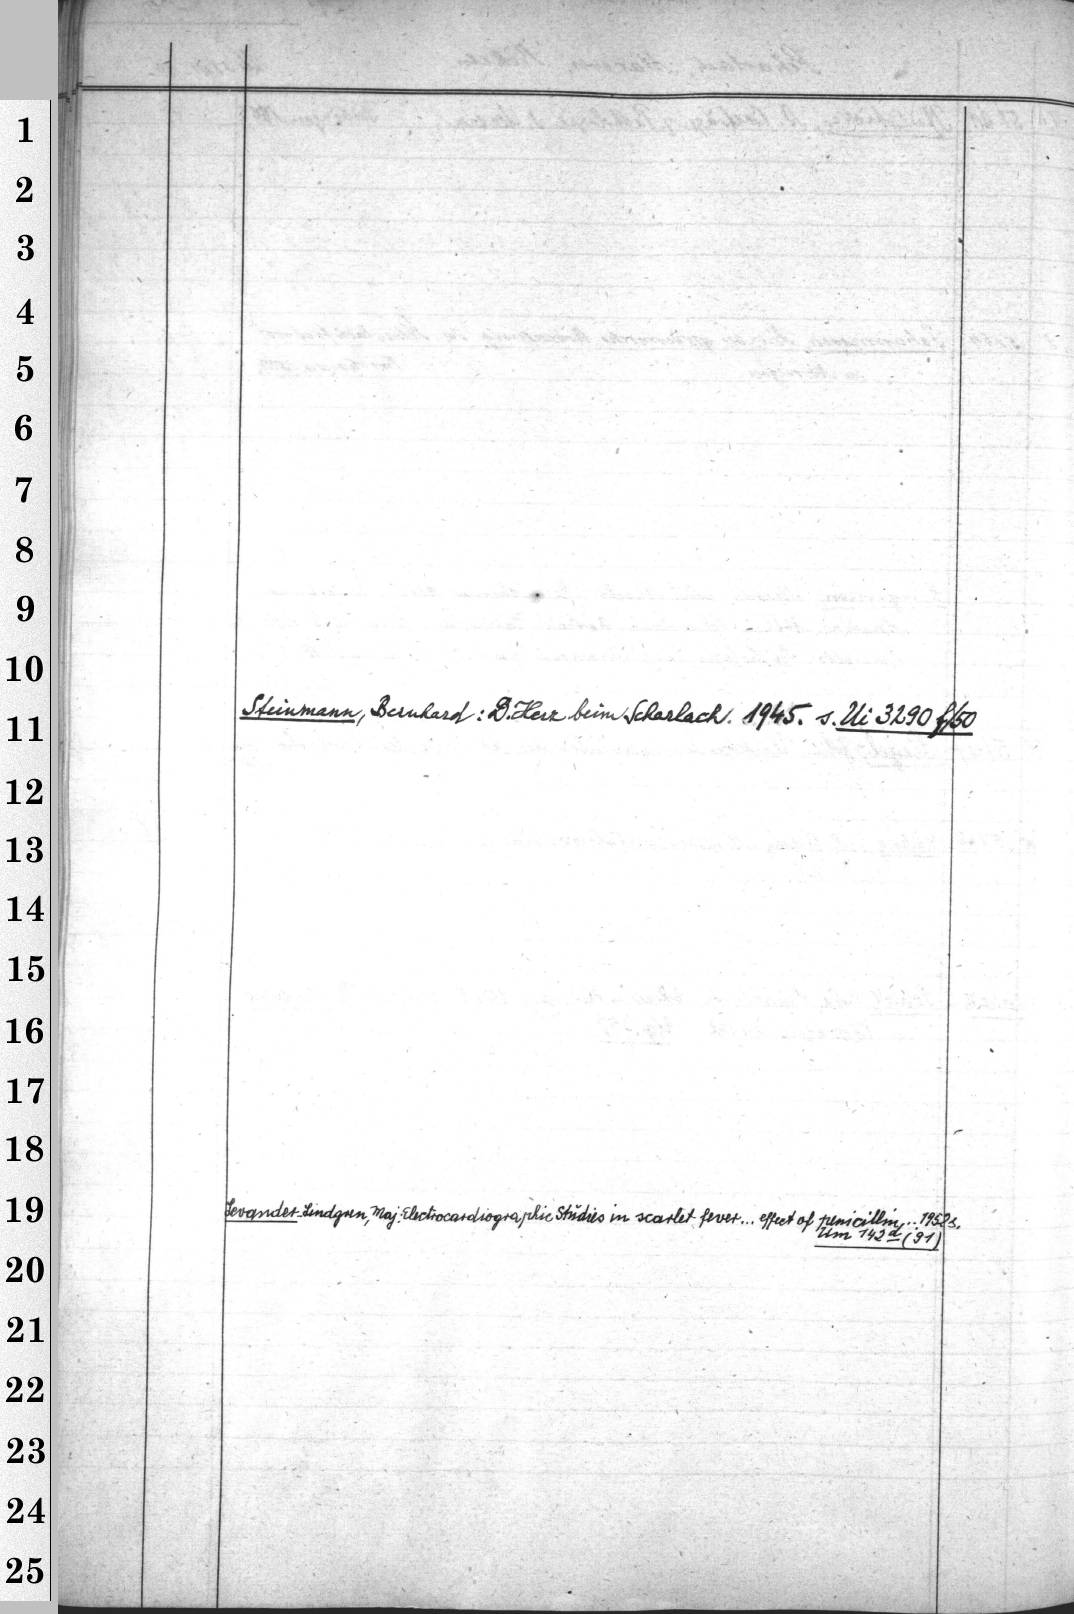 1
2
3
4
5
6
7
8
9
10
Steinmann, Bernhard: D. Herz beim Scharlach. 1945. s. Ui 3290 f/50
11
12
13
14
15
16
17
18
19
Levander-Lindgren, Maj: Electrocardiographic Studies in scarlet fever... effect of penicillin... 1952 s.
Um 142d (91)
20
21
22
23
24
25